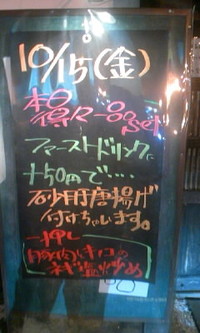 10/15(金)
本日
得々-品set
ファーストドリンクに
+50円で‥‥
砂肝唐揚げ
付けちゃいます。
一押し
豚肉とキノコの
ネギ塩炒め